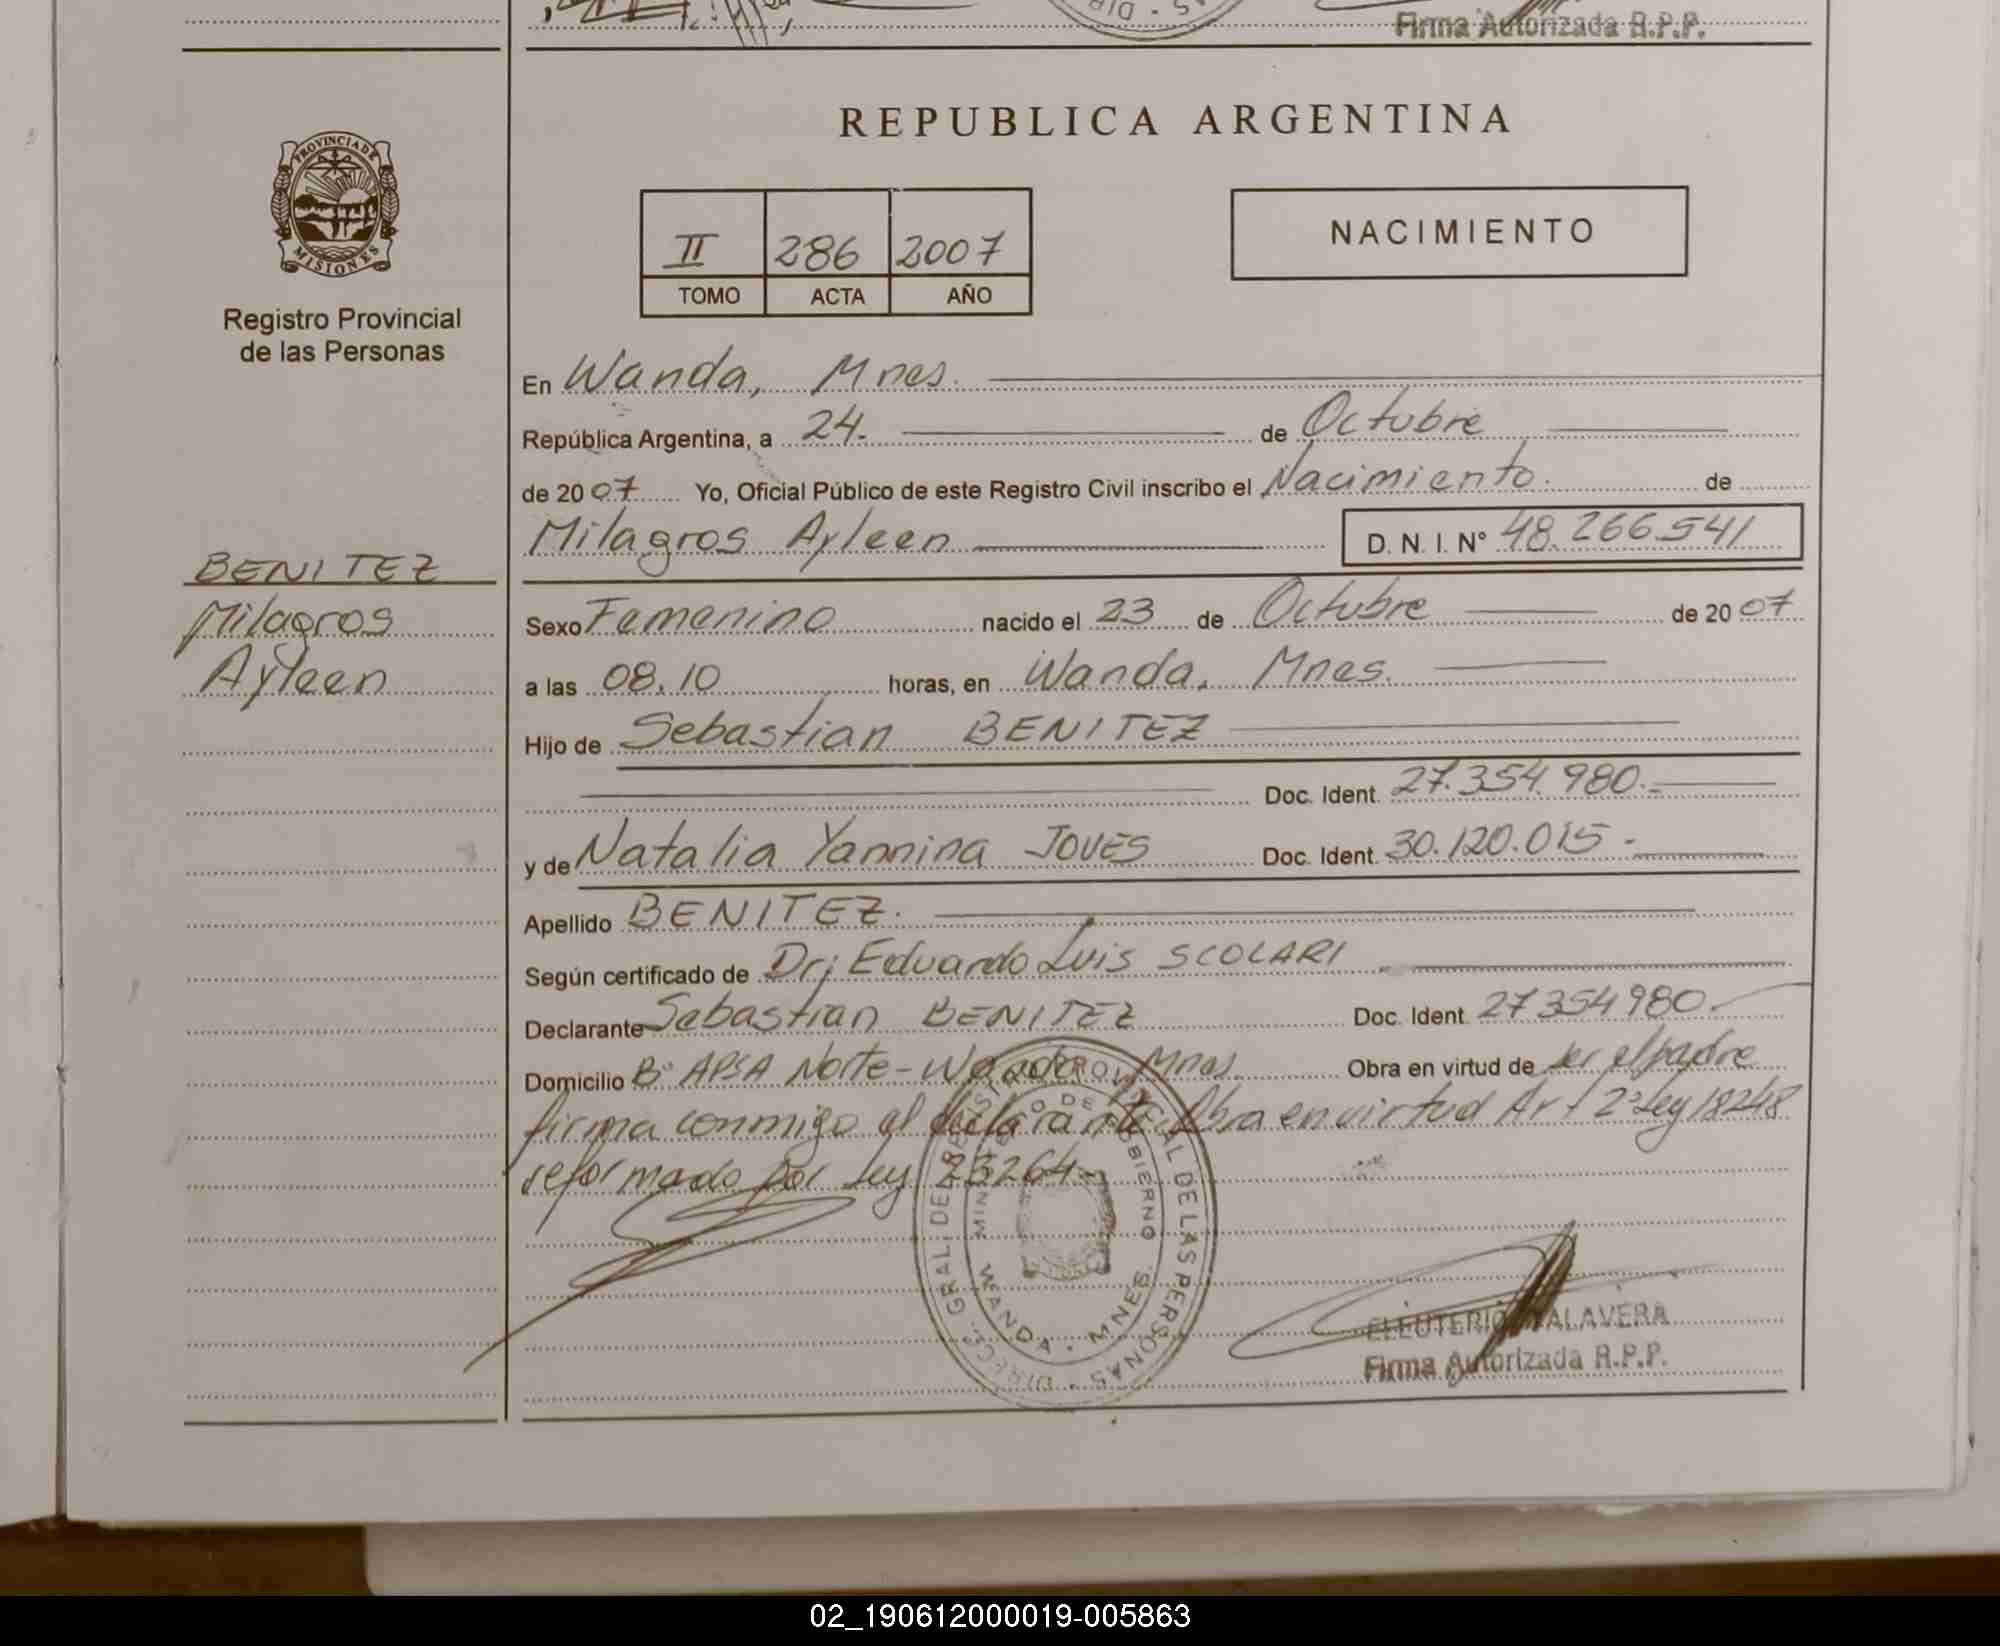 Firma Autorizada R.P.P.
REPUBLICA ARGENTINA
PROVINCIA DE
MISIONES
II 286 2007
TOMO ACTA AÑO
NACIMIENTO
Registro Provincial
de las Personas
BENITEZ
Milagros
Ayleen
En Wanda, Mnes.
República Argentina, a 24. de Octubre
de 2007 Yo, Oficial Público de este Registro Civil inscribo el Nacimiento. de
Milagros Ayleen D. N. I. N° 48.266.541
Sexo Femenino nacido el 23 de Octubre de 2007
a las 08.10 horas, en Wanda. Mnes.
Hijo de Sebastian BENITEZ
Doc. Ident. 27.354.980.-
y de Natalia Yannina JOVES Doc. Ident. 30.120.015.-
Apellido BENITEZ.
Según certificado de Dr; Eduardo Luis SCOLARI
Declarante Sebastian BENITEZ Doc. Ident. 27354980.-
Domicilio B° APSA Norte-Wanda Mnes. Obra en virtud de ser el padre
firma conmigo el declarante. Obra en virtud Art 2° Ley 18248
reformado por Ley 23264-
DIRECC. GRAL. DE REGISTRO PROVINCIAL DE LAS PERSONAS
MINISTERIO DE GOBIERNO
WANDA - MNES
ELEUTERIO TALAVERA
Firma Autorizada R.P.P.
02_190612000019-005863